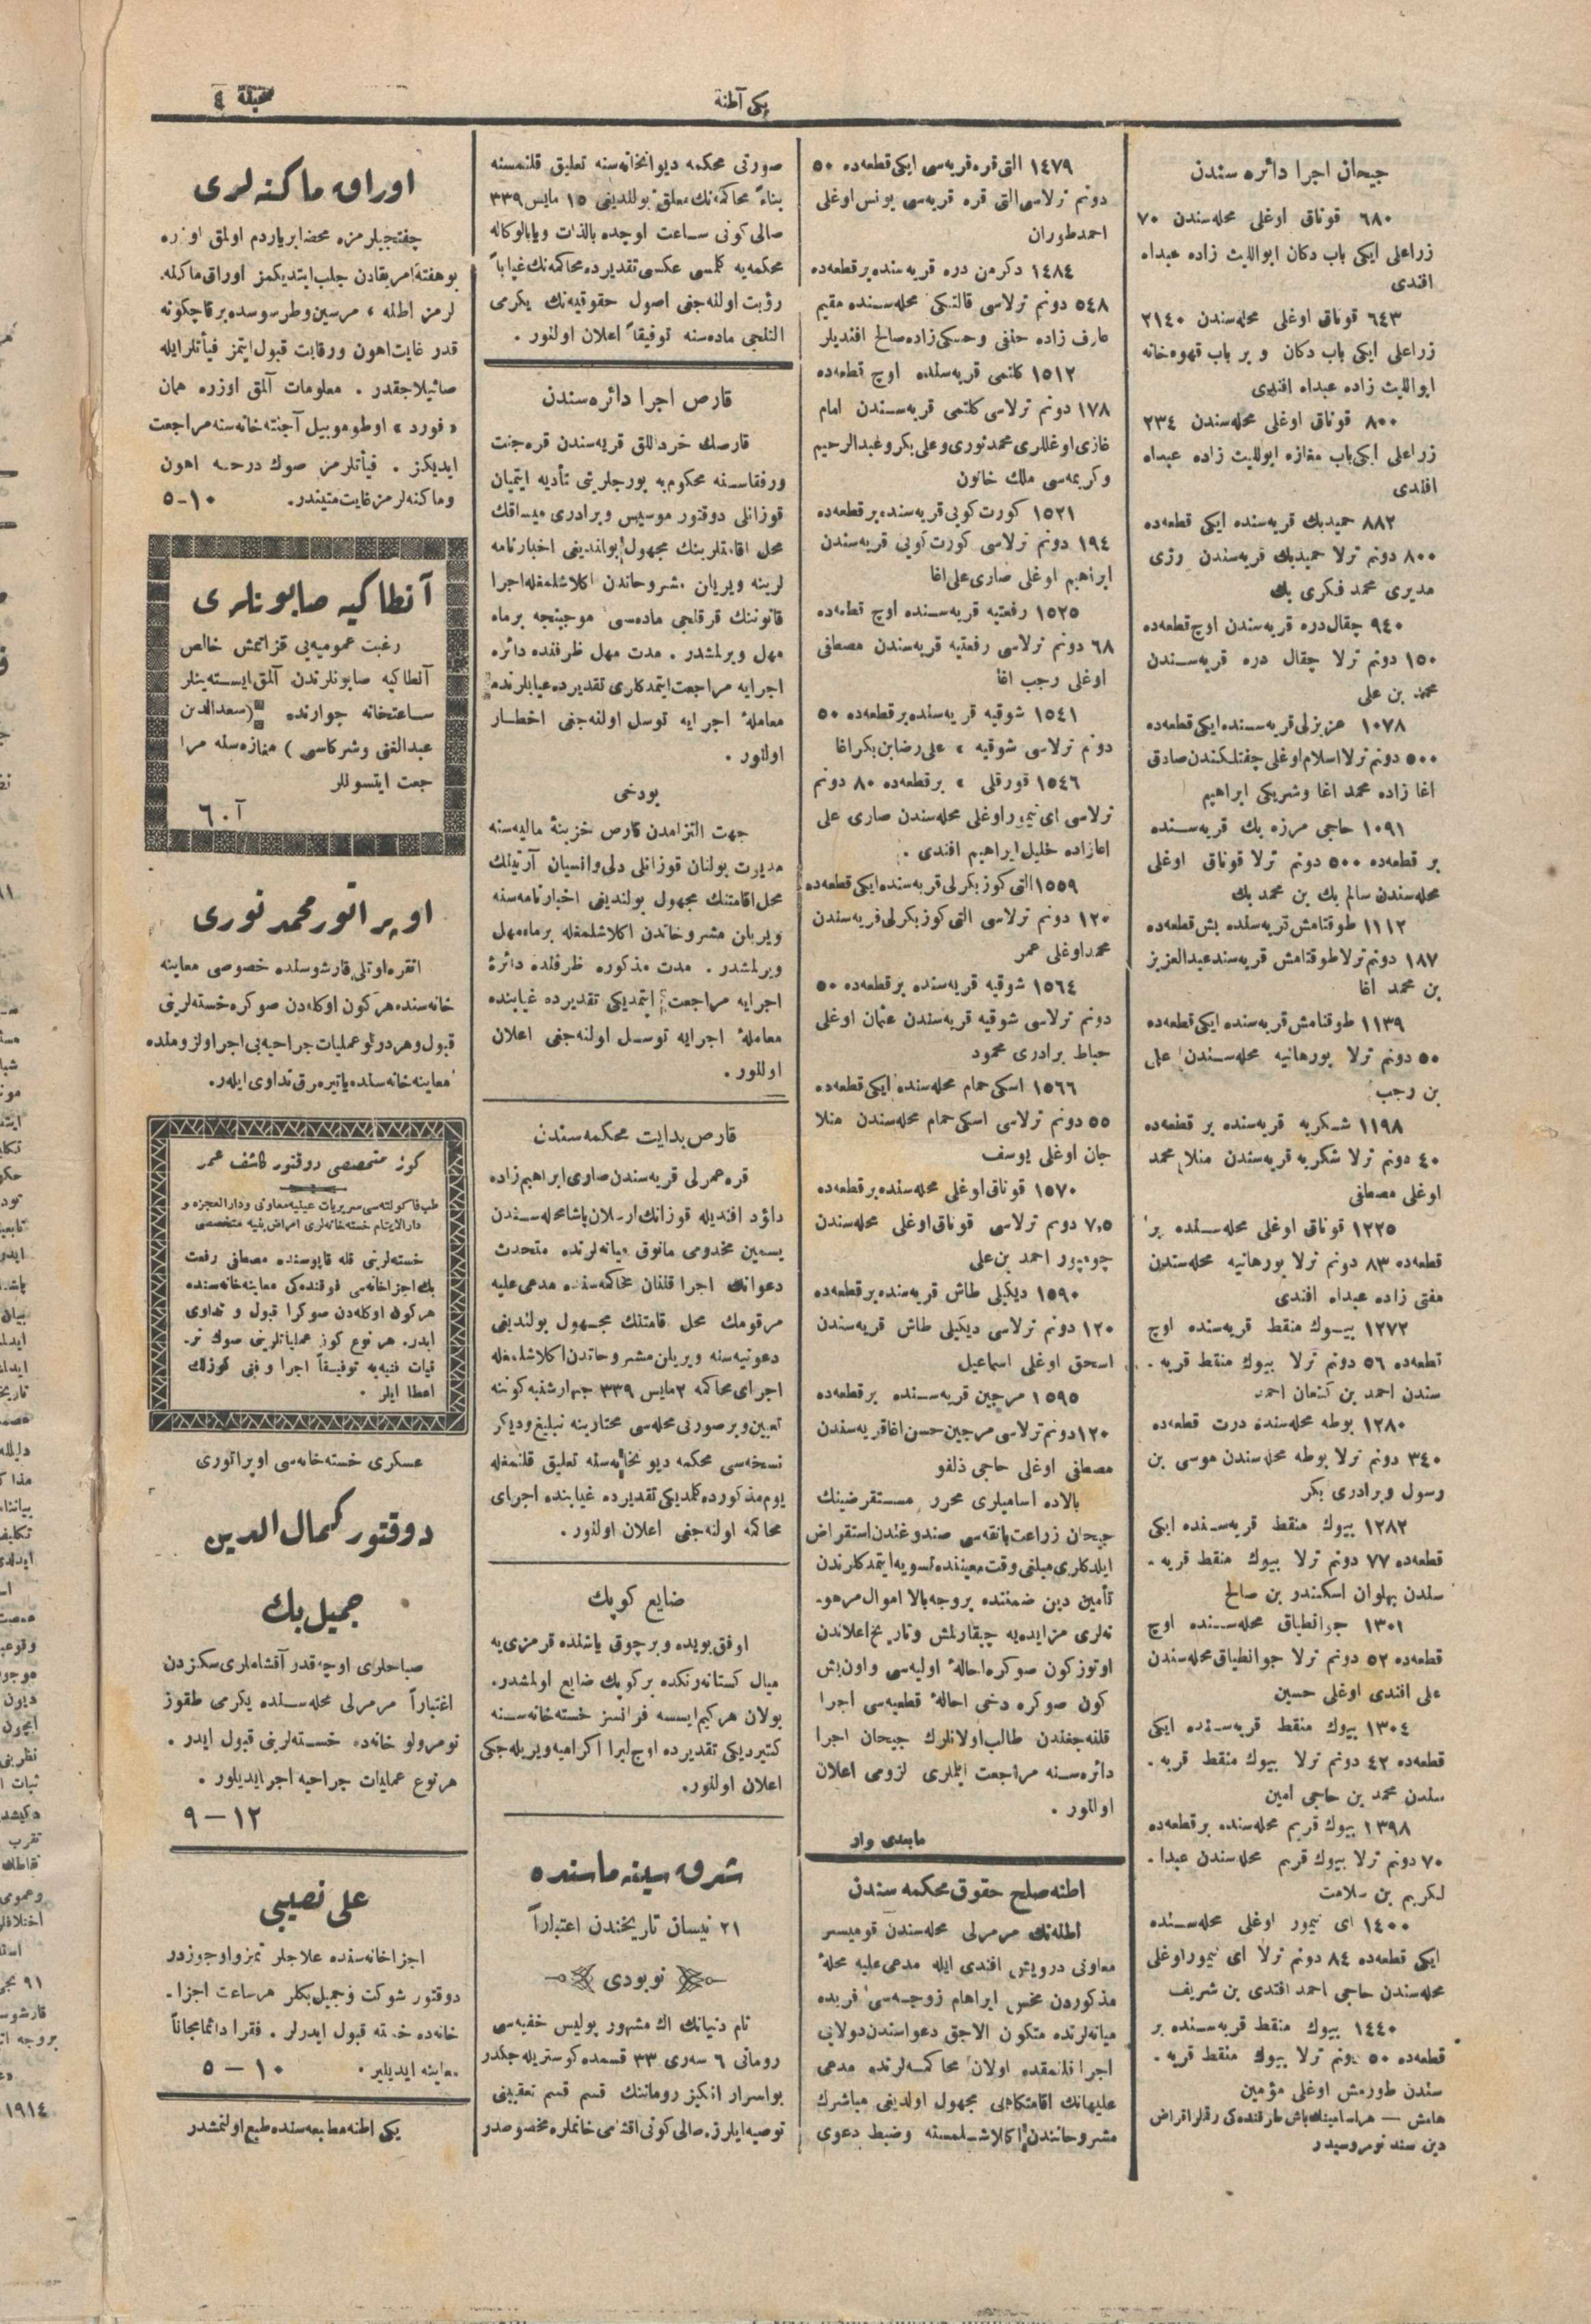 یکی آطنه
صحیفة ٤
جیحان اجرا دائره سندن
٦٨٠ قوناق اوغلی محله‌سندن ٧٠
زراعلی ایکی باب دکان ابواللیث زاده عبداه
افندی
٦٤٣ قوناق اوغلی محله‌سندن ٢١٤٠
زراعلی ایکی باب دکان و بر باب قهوه‌خانه
ابواللیث زاده عبداه افندی
٨٠٠ قوناق اوغلی محله‌سندن ٢٣٤
زراعلی ایکی باب مغازه ابواللیث زاده عبداه
افندی
٨٨٢ حمیدبك قریه‌سنده ایکی قطعه‌ده
٨٠٠ دونم ترلا حمیدبك قریه‌سندن رژی
مدیری محمد فکری بك
٩٤٠ چقال‌دره قریه‌سندن اوچ قطعه‌ده
١٥٠ دونم ترلا چقال دره قریه‌سندن
محمد بن علی
١٠٧٨ قریه‌سنده ایکی قطعه‌ده
٥٠٠ دونم ترلا اسلام اوغلی چفتلکندن صادق
اغا زاده محمد اغا وشریکی ابراهیم
١٠٩١ حاجی مرزه بك قریه‌سنده
بر قطعه‌ده ٥٠٠ دونم ترلا قوناق اوغلی
محله‌سندن سالم بك بن محمد بك
١١١٢ طوقتامش قریه‌سنده بش قطعه‌ده
١٨٧ دونم ترلا طوقتامش قریه‌سندعبدالعزیز
بن محمد اغا
١١٣٩ طوقتامش قریه‌سنده ایکی قطعه‌ده
٥٠ دونم ترلا بورهانیه محله‌سندن علی
بن رجب
١١٩٨ شکریه قریه‌سنده بر قطعه‌ده
٤٠ دونم ترلا شکریه قریه‌سندن منلا محمد
اوغلی مصطفی
١٢٢٥ قوناق اوغلی محله‌سنده بر
قطعه‌ده ٨٣ دونم ترلا بورهانیه محله‌سندن
مفتی زاده عبداه افندی
١٢٧٢ بیوك منقط قریه‌سنده اوچ
قطعه‌ده ٥٦ دونم ترلا بیوك منقط قریه ـ
سندن احمد بن کنعان احمد
١٢٨٠ بوطه محله‌سنده درت قطعه‌ده
٣٤٠ دونم ترلا بوطه محله‌سندن موسی بن
رسول وبرادری بکر
١٢٨٢ بیوك منقط قریه‌سنده ایکی
قطعه‌ده ٧٧ دونم ترلا بیوك منقط قریه ـ
سندن پهلوان اسکندر بن صالح
١٣٠١ محله‌سنده اوچ
قطعه‌ده ٥٢ دونم ترلا محله‌سندن
علی افندی اوغلی حسین
١٣٠٤ بیوك منقط قریه‌سنده ایکی
قطعه‌ده ٤٢ دونم ترلا بیوك منقط قریه ـ
سندن محمد بن حاجی امین
١٣٩٨ بیوك قریم محله‌سنده برقطعه‌ده
٧٠ دونم ترلا بیوك قریم محله‌سندن عبدا ـ
لکریم بن سلامت
١٤٠٠ ای تیمور اوغلی محله‌سنده
ایکی قطعه‌ده ٨٤ دونم ترلا ای تیموراوغلی
محله‌سندن حاجی احمد افندی بن شریف
١٤٤٠ بیوك منقط قریه‌سنده بر
قطعه‌ده ٥٠ دونم ترلا بیوك منقط قریه ـ
سندن طورمش اوغلی مؤمین
هامش — باش طرفنده‌کی رقملر اقراض
دین سند نومروسیدر
١٤٧٩ التی قره قریه‌سی ایکی قطعه‌ده ٥٠
دونم ترلاسی التی قره قریه‌سی یونس اوغلی
احمد طوران
١٤٨٤ دکرمن دره قریه‌سنده برقطعه‌ده
٥٤٨ دونم ترلاسی محله‌سنده مقیم
عارف زاده حنفی و زاده صالح افندیلر
١٥١٢ قریه‌سنده اوچ قطعه‌ده
١٧٨ دونم ترلاسی قریه‌سندن امام
غازی اوغللری محمدنوری وعلی بکر وعبدالرحیم
وکریمه‌سی ملك خاتون
١٥٢١ کورت کویی قریه‌سنده برقطعه‌ده
١٩٤ دونم ترلاسی کورت کویی قریه‌سندن
ابراهیم اوغلی صاری علی اغا
١٥٢٥ رفعتیه قریه‌سنده اوچ قطعه‌ده
٦٨ دونم ترلاسی رفعتیه قریه‌سندن مصطفی
اوغلی رجب اغا
١٥٤١ شوقیه قریه‌سنده برقطعه‌ده ٥٠
دونم ترلاسی شوقیه » علی رضا بن بکر اغا
١٥٤٦ قورقلی » برقطعه‌ده ٨٠ دونم
ترلاسی ای تیموراوغلی محله‌سندن صاری علی
اغازاده خلیل ابراهیم افندی .
١٥٥٩ التی کوز بکرلی قریه‌سنده ایکی قطعه‌ده
١٢٠ دونم ترلاسی التی کوز بکرلی قریه‌سندن
محمد اوغلی عمر
١٥٦٤ شوقیه قریه‌سنده برقطعه‌ده ٥٠
دونم ترلاسی شوقیه قریه‌سندن عثمان اوغلی
برادری محمود
١٥٦٦ اسکی حمام محله‌سنده ایکی قطعه‌ده
٥٥ دونم ترلاسی اسکی حمام محله‌سندن منلا
جان اوغلی یوسف
١٥٧٠ قوناق اوغلی محله‌سنده برقطعه‌ده
٧,٥ دونم ترلاسی قوناق اوغلی محله‌سندن
احمد بن علی
١٥٩٠ دیکیلی طاش قریه‌سنده برقطعه‌ده
١٢٠ دونم ترلاسی دیکیلی طاش قریه‌سندن
اسحق اوغلی اسماعیل
١٥٩٥ مرجین قریه‌سنده برقطعه‌ده
١٢٠ دونم ترلاسی مرجین حسن اغاقریه‌سندن
مصطفی اوغلی حاجی ذلفو
بالاده اسامیلری محرر مستقرضینك
جیحان زراعت بانقه‌سی صندوغندن استقراض
ایلدکلری مبلغی وقت معیننده تسویه ایتمدکلرندن
تأمین دین ضمننده بروجه بالا اموال مرهو ـ
نه‌لری مزایده‌یه چیقارلمش وتاریخ اعلاندن
اوتوزکون صوکره احالهٔ اولیه‌سی واون بش
کون صوکره دخی احالهٔ قطعیه‌سی اجرا
قلنه‌جغندن طالب اولانلرك جیحان اجرا
دائره‌سنه مراجعت ایتملری لزومی اعلان
اولنور .
مابعدی وار
اطنه صلح حقوق محکمه سندن
اطنه‌نك مرمرلی محله‌سندن قومیسر
معاونی درویش افندی ایله مدعی علیه محلهٔ
مذکوردن ابراهام زوجه‌سی فریده
میانه‌لرنده متکون الاجق دعواسندن دولایی
اجرا قلنمقده اولان محاکمه‌لرنده مدعی
علیهانك اقامتکاهی مجهول اولدیغی مباشرك
مشروحاتندن اکلاشلمسنه وضبط دعوی
صورتی محکمه دیوانخانه‌سنه تعلیق قلنمسنه
بناءً محاکمه‌نك معلق بولندیغی ١٥ مایس ٣٣٩
صالی کونی ساعت اوچده بالذات ویابالوکاله
محکمه‌یه کلمسی عکسی تقدیرده محاکمه‌نك غیاباً
رؤیت اولنه‌جغی اصول حقوقیه‌نك یکرمی
التنجی ماده‌سنه توفیقاً اعلان اولنور .
قارص اجرا دائره سندن
قارصك خرداللق قریه‌سندن قره جنت
ورفقاسنه محکوم‌به بورجلرینی تأدیه ایتمیان
قوزانلی دوقتور موسیس وبرادری میساقك
محل اقامتلرینك مجهول بولندیغی اخبارنامه
لرینه ویریان مشروحاتدن اکلاشلمغله اجرا
قانوننك قرقنجی ماده‌سی موجبنجه برماه
مهل ویرلمشدر . مدت مهل ظرفنده دائره
اجرایه مراجعت ایتمدکلری تقدیرده غیابلرنده
معاملهٔ اجرایه توسل اولنه‌جغی اخطار
اولنور .
بودخی
جهت التزامدن قارص خزینهٔ مالیه‌سنه
مدیون بولنان قوزانلی آرتینك
محل اقامتنك مجهول بولندیغی اخبارنامه‌سنه
ویریلن مشروحاتدن اکلاشلمغله برماه مهل
ویرلمشدر . مدت مذکوره ظرفنده دائرهٔ
اجرایه مراجعت ایتمدیکی تقدیرده غیابنده
معاملهٔ اجرایه توسل اولنه‌جغی اعلان
اولنور .
قارص بدایت محکمه سندن
قره عمرلی قریه‌سندن صاری ابراهیم زاده
داؤد افندیله قوزانك ارسلان پاشا محله‌سندن
یسمین مخدومی مانوق میانه‌لرنده متحدث
دعوانك اجرا قلنان محاکمه‌سنده مدعی علیه
مرقومك محل اقامتنك مجهول بولندیغی
دعوتیه‌سنه ویریلن مشروحاتدن اکلاشلمغله
اجرای محاکمه ٢ مایس ٣٣٩ چهارشنبه کوننه
تعیین وبر صورتی محله‌سی مختارینه تبلیغ ودیکر
نسخه‌سی محکمه دیوانخانه‌سنه تعلیق قلنمغله
یوم مذکورده کلمدیکی تقدیرده غیابنده اجرای
محاکمه اولنه‌جغی اعلان اولنور .
ضایع کوپك
اوفق بویده وبرچوق یاشنده قرمزی‌یه
میال کستانه رنکنده برکوپك ضایع اولمشدر.
بولان هرکیم ایسه فرانسز خسته‌خانه‌سنه
کتیردیکی تقدیرده اوچ لیرا اکرامیه ویریله‌جکی
اعلان اولنور.
شرق سینه ماسنده
٢١ نیسان تاریخندن اعتباراً
نوبودی
تام دنیانك اك مشهور پولیس خفیه‌سی
رومانی ٦ سه‌ری ٣٣ قسمده کوستریله‌جکدر
بواسرار انکیز رومانك قسم قسم تعقیبنی
توصیه ایلرز. صالی کونی اقشامی خانملره مخصوصدر
اوراق ماکنه لری
چفتجیلرمزه محضا بریاردم اولمق اوزره
بوهفته امریقادن جلب ایتدیکمز اوراق ماکنه
لرمز اطنه ، مرسین وطرسوسده برقاچ کونه
قدر غایت اهون ورقابت قبول ایتمز فیأتلرایله
صاتیلاجقدر . معلومات آلمق اوزره همان
«فورد» اوطوموبیل آجنته‌خانه‌سنه مراجعت
ایدیکز . فیأتلرمز صوك درجه اهون
وماکنه‌لرمز غایت متیندر. ١٠ـ٥
آنطاکیه صابونلری
رغبت عمومیه‌یی قزانمش خالص
آنطاکیه صابونلرندن آلمق ایسته‌ینلر
ساعتخانه جوارنده (سعدالدین
عبدالغنی وشرکاسی) مغازه‌سنه مرا
جعت ایتسونلر
آ.٦٠
اوپراتور محمد نوری
انقره اوتلی قارشوسنده خصوصی معاینه
خانه‌سنده هرکون اوکله‌دن صوکره خسته‌لرینی
قبول وهردرلو عملیات جراحیه‌یی اجرا ولزومنده
معاینه‌خانه‌سنده یاتیره‌رق تداوی ایلر.
کوز متخصصی دوقتور کاشف عمر
طب فاکولته‌سی سریریات عینیه معاونی ودارالعجزه و
دارالایتام خسته‌خانه‌لری امراض عینیه متخصصی
خسته‌لرینی قله قاپوسنده مصطفی رفعت
بك اجزاخانه‌سی فوقنده‌کی معاینه‌خانه‌سنده
هرکون اوکله‌دن صوکرا قبول و تداوی
ایدر. هرنوع کوز عملیاتلرینی صوك تر ـ
قیات فنیه‌یه توفیقاً اجرا وفنی کوزلك
اعطا ایلر .
عسکری خسته خانه‌سی اوپراتوری
دوقتور کمال الدین
جمیل بك
صباحلری اوچه قدر آقشاملری سکزدن
اعتباراً مرمرلی محله‌سنده یکرمی طقوز
نومرولو خانه‌ده خسته‌لرینی قبول ایدر .
هرنوع عملیات جراحیه اجرا ایدیلور .
١٢ — ٩
علی نصیبی
اجزاخانه‌سنده علاجلر تمیز واوجوزدر
دوقتور شوکت وجمیل بکلر هرساعت اجزا ـ
خانه‌ده خسته قبول ایدرلر . فقرا دائما مجاناً
معاینه ایدیلیر . ١٠ — ٥
یکی اطنه مطبعه‌سنده طبع اولنمشدر